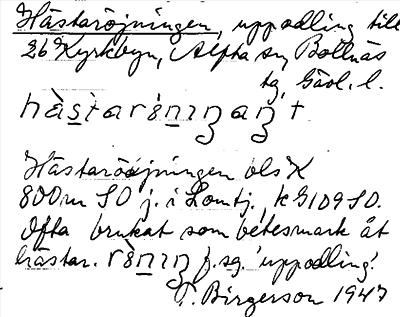 Hästaröjningen, uppodling till
26 Kyrkbyn, Alfta sn, Bollnäs
tg, Gävl. l.
Hästaröjningen obs K
800 m SO j. i Lomtj., k G109 SO.
Ofta brukat som betesmark åt
hästar. f. sg. 'uppodling'.
Birgerson 1947